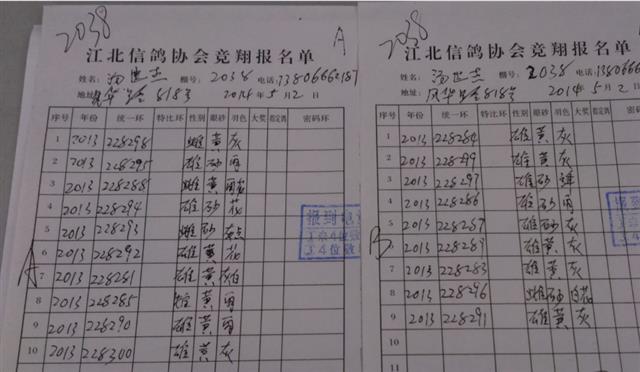 2038
A
江北信鸽协会竞翔报名单
姓名: 汤世杰 棚号: 2038 电话:
地址: 818号 2014年5月2日
序号 年份 统一环 特比环 性别 眼砂 羽色 大奖 指定鸽 密码环
1 2013 228298 雌 黄 灰
2 2013 228295 雄 砂 雨
3 2013 228288 雌 黄
4 2013 228294 雄 砂 花
5 2013 228293 雌 砂
6 2013 228292 雄 黄 花
7 2013 228281 雄 黄
8 2013 228285 黄 雨
9 2013 228290 雄 黄 雨
10 2013 228300 雄 黄 灰
A
报到
4位数
2038
A
江北信鸽协会竞翔报名单
姓名: 汤世杰 棚号: 2038 电话:
地址: 818号 2014年5月2日
序号 年份 统一环 特比环 性别 眼砂 羽色 大奖 指定鸽 密码环
1 2013 228284 雄 黄 灰
2 2013 228299 雄 黄 灰
3 2013 228297 雄 砂
4 2013 228286 雄 砂 雨
5 2013 228287 雄 黄 灰
6 2013 雄 黄 灰
7 2013 228283 雄 黄 灰
8 2013 228296 雌 砂
9 2013 228291 雄 黄 灰
10
11
B
4位数